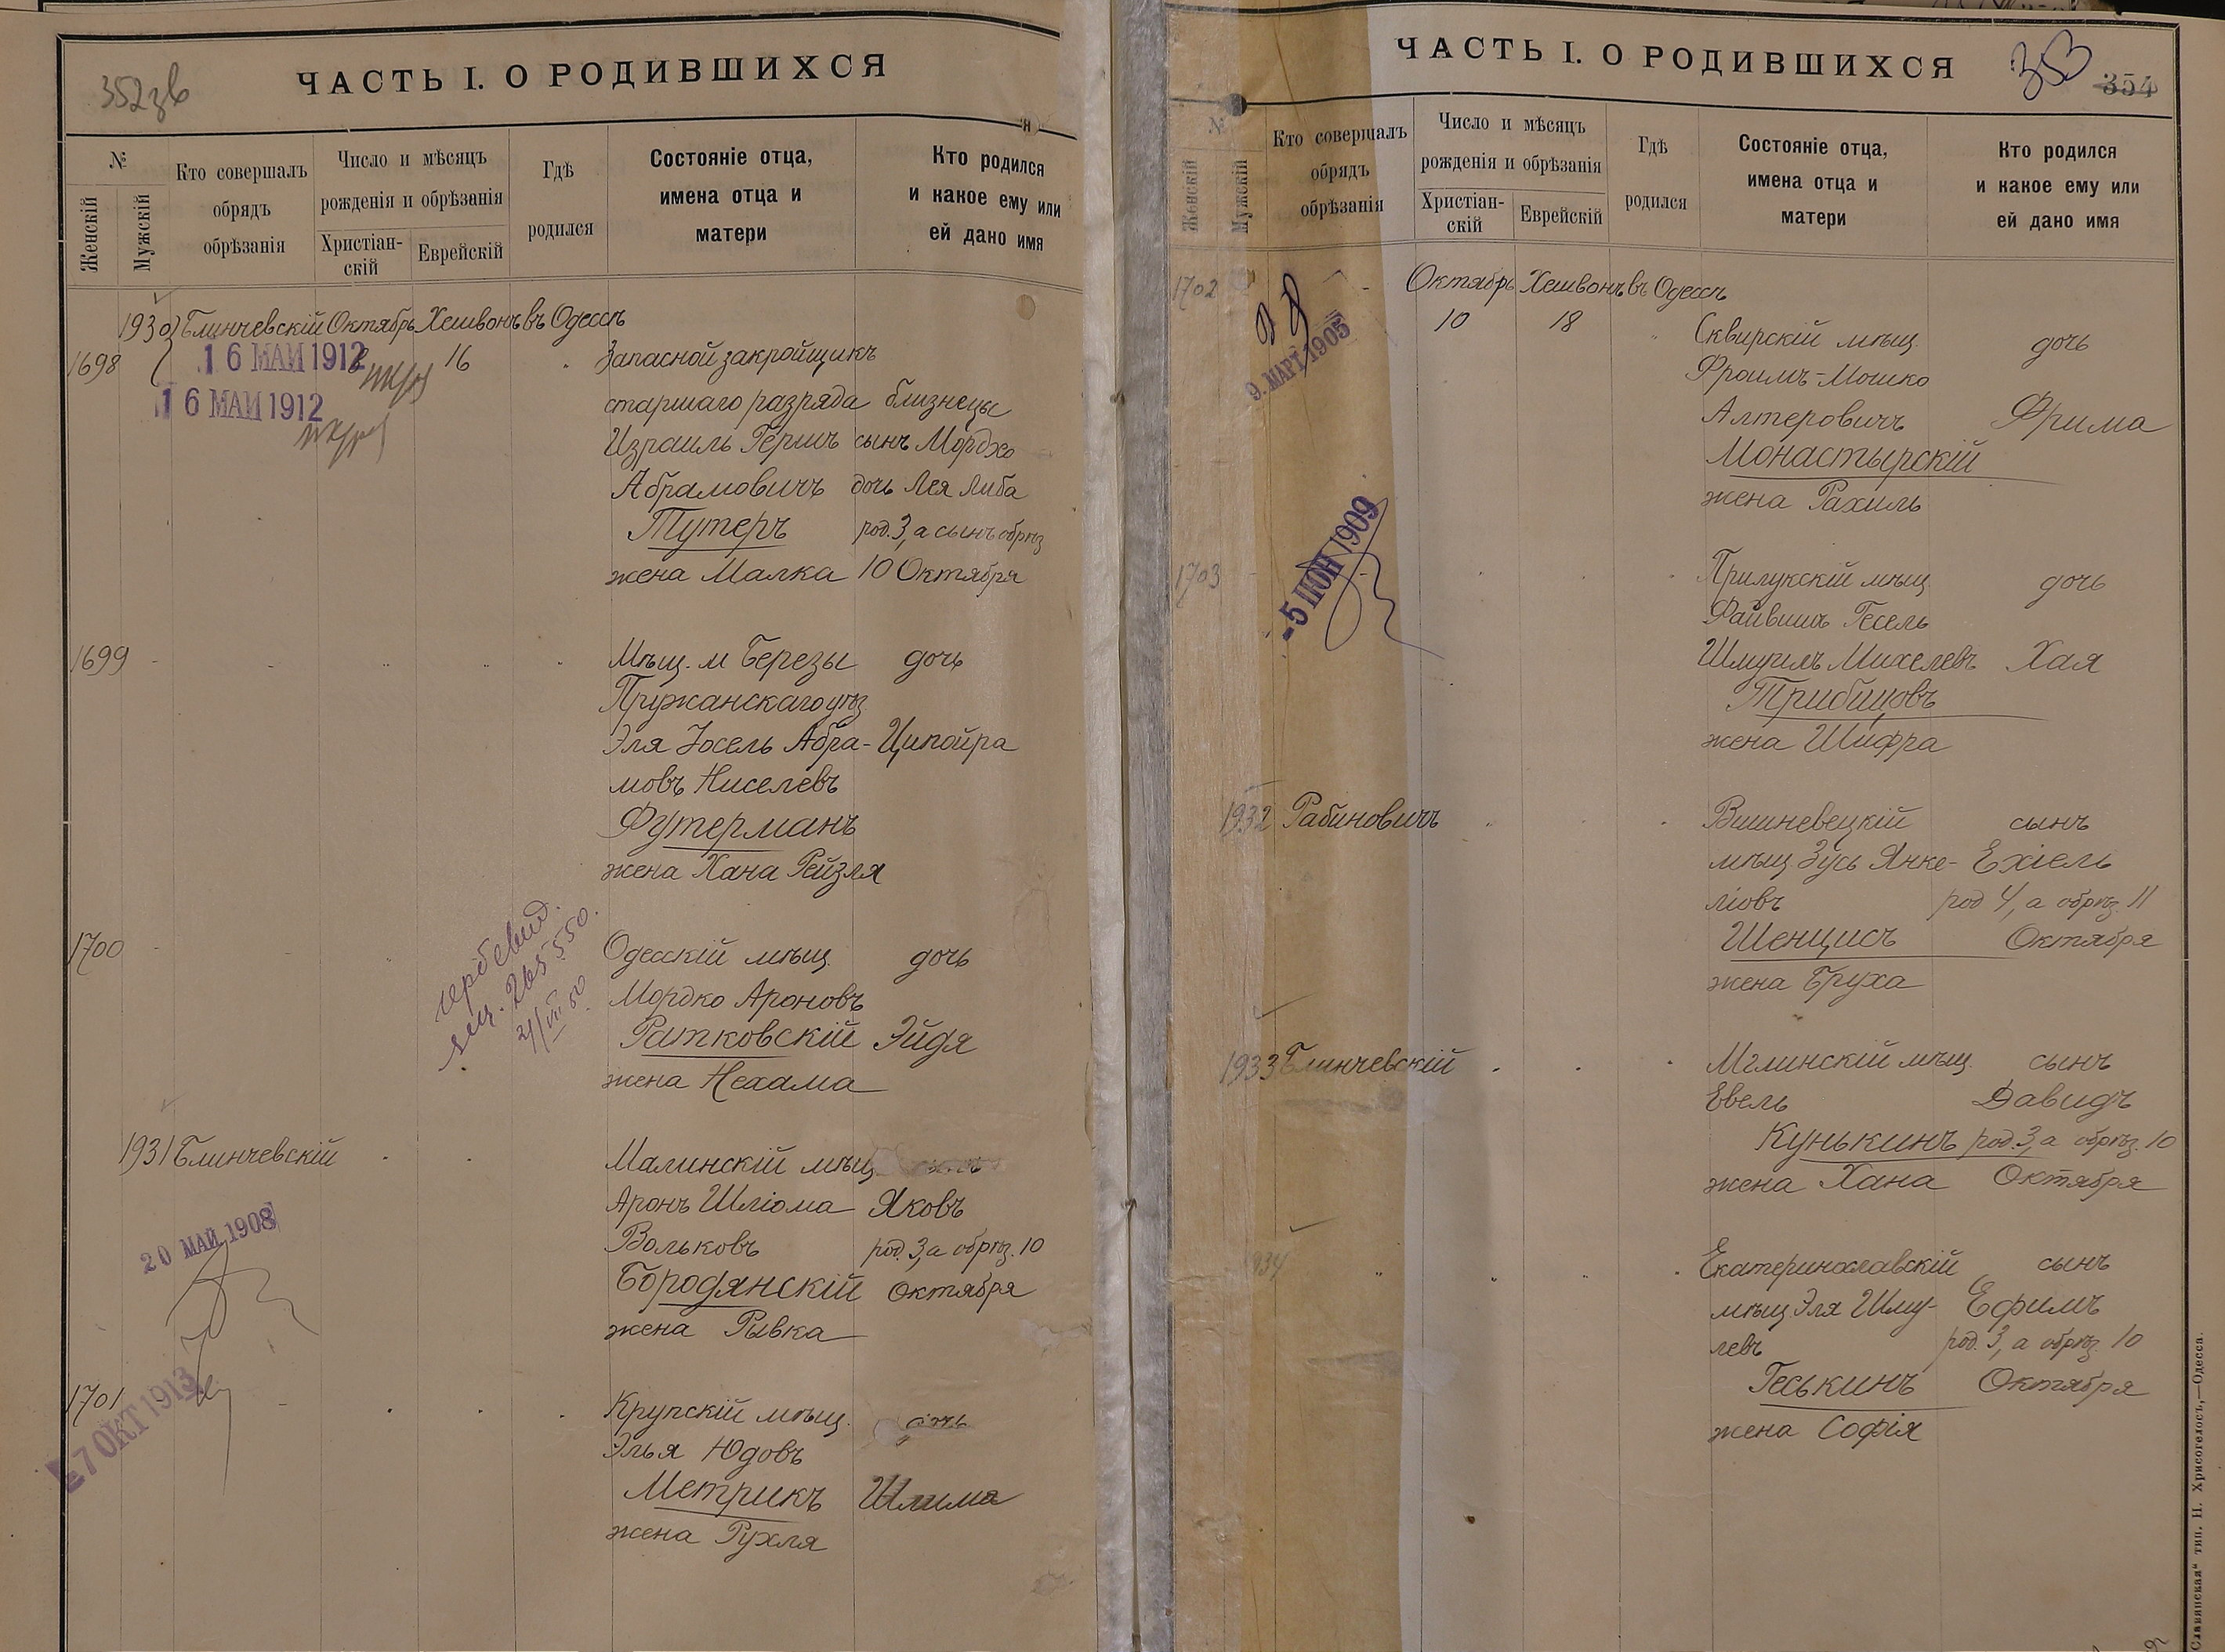 352 зв
ЧАСТЬ I. О РОДИВШИХСЯ
№
Женскій
Мужскій
Кто совершалъ
обрядъ
обрѣзанія
Число и мѣсяцъ
рожденія и обрѣзанія
Христіан-
скій
Еврейскій
Гдѣ
родился
Состояніе отца,
имена отца и
матери
Кто родился
и какое ему или
ей дано имя
1930 Блинчевскій Октябрь Хешвонъ въ Одессѣ
1698
16 МАИ 1912
16
16 МАИ 1912
Запасной закройщикъ
старшаго разряда близнецы
Израиль Гершъ сынъ Мордхо
Абрамовичъ дочь Лея Либа
Тутеръ род. 3, а сынъ обрѣз
жена Малка 10 Октября
1699 Мѣщ. м Березы дочь
Пружанскаго уѣз
Эля Іосель Абра- Ципойра
мовъ Ниселевъ
Футерманъ
жена Хана Рейзля
265550
1700 Одесскій мѣщ. дочь
Мордко Ароновъ
Ратковскій Эйдя
жена Нехама
1931 Блинчевскій Малинскій мѣщ. сынъ
Аронъ Шліома Яковъ
Вольковъ род. 3, а обрѣз. 10
Бородянскій Октября
жена Рывка
20 МАИ 1908
1701 Крупскій мѣщ. дочь
Элья Юдовъ
Метрикъ Шлима
жена Рухля
-7 ОКТ 1913
ЧАСТЬ I. О РОДИВШИХСЯ
353
354
№
Женскій
Мужскій
Кто совершалъ
обрядъ
обрѣзанія
Число и мѣсяцъ
рожденія и обрѣзанія
Христіан-
скій
Еврейскій
Гдѣ
родился
Состояніе отца,
имена отца и
матери
Кто родился
и какое ему или
ей дано имя
1702 Октябрь Хешвонъ въ Одессѣ
10 18 Сквирскій мѣщ. дочь
9. МАРТ 1905
Фроимъ-Мошко
Алтеровичъ Фрима
Монастырскій
жена Рахиль
-5 ІЮН 1909
1703 Прилукскій мѣщ. дочь
Файвишъ Гесель
Шмуилъ Михелевъ Хая
Трибицовъ
жена Шифра
1932 Рабиновичъ Вишневецкій сынъ
мѣщ Зусь Янке- Ехіель
ліовъ род 4, а обрѣз. 11
Шенцисъ Октября
жена Бруха
1933 Блинчевскій Мглинскій мѣщ. сынъ
Евель Давидъ
Кунькинъ род. 3, а обрѣз. 10
жена Хана Октября
1934 Екатеринославскій сынъ
мѣщ Эля Шму- Ефимъ
левъ род. 3, а обрѣз. 10
Геськинъ Октября
жена Софія
Славянская“ тип. Н. Хрисогелосъ,—Одесса.